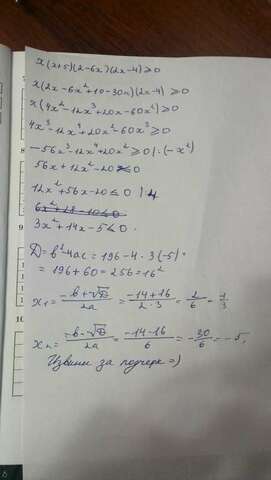 x(x+5)(2-6x)(2x-4)≥0
x(2x-6x²+10-30x)(2x-4)≥0
x(4x²-12x³+20x-60x²)≥0
4x³-12x⁴+20x²-60x³≥0
-56x³-12x⁴+20x²≥0 |·(-x²)
56x+12x²-20≤0
12x²+56x-20≤0 | 4
6x²+28-10≤0
3x²+14x-5≤0.
D=b²-4ac=196-4·3(-5)=
=196+60=256=16²
x₁=(-b+√D)/2a=(-14+16)/(2·3)=2/6=1/3
x₂=(-b-√D)/2a=(-14-16)/6=-30/6=-5.
Извини за подчерк =)
8
9
10